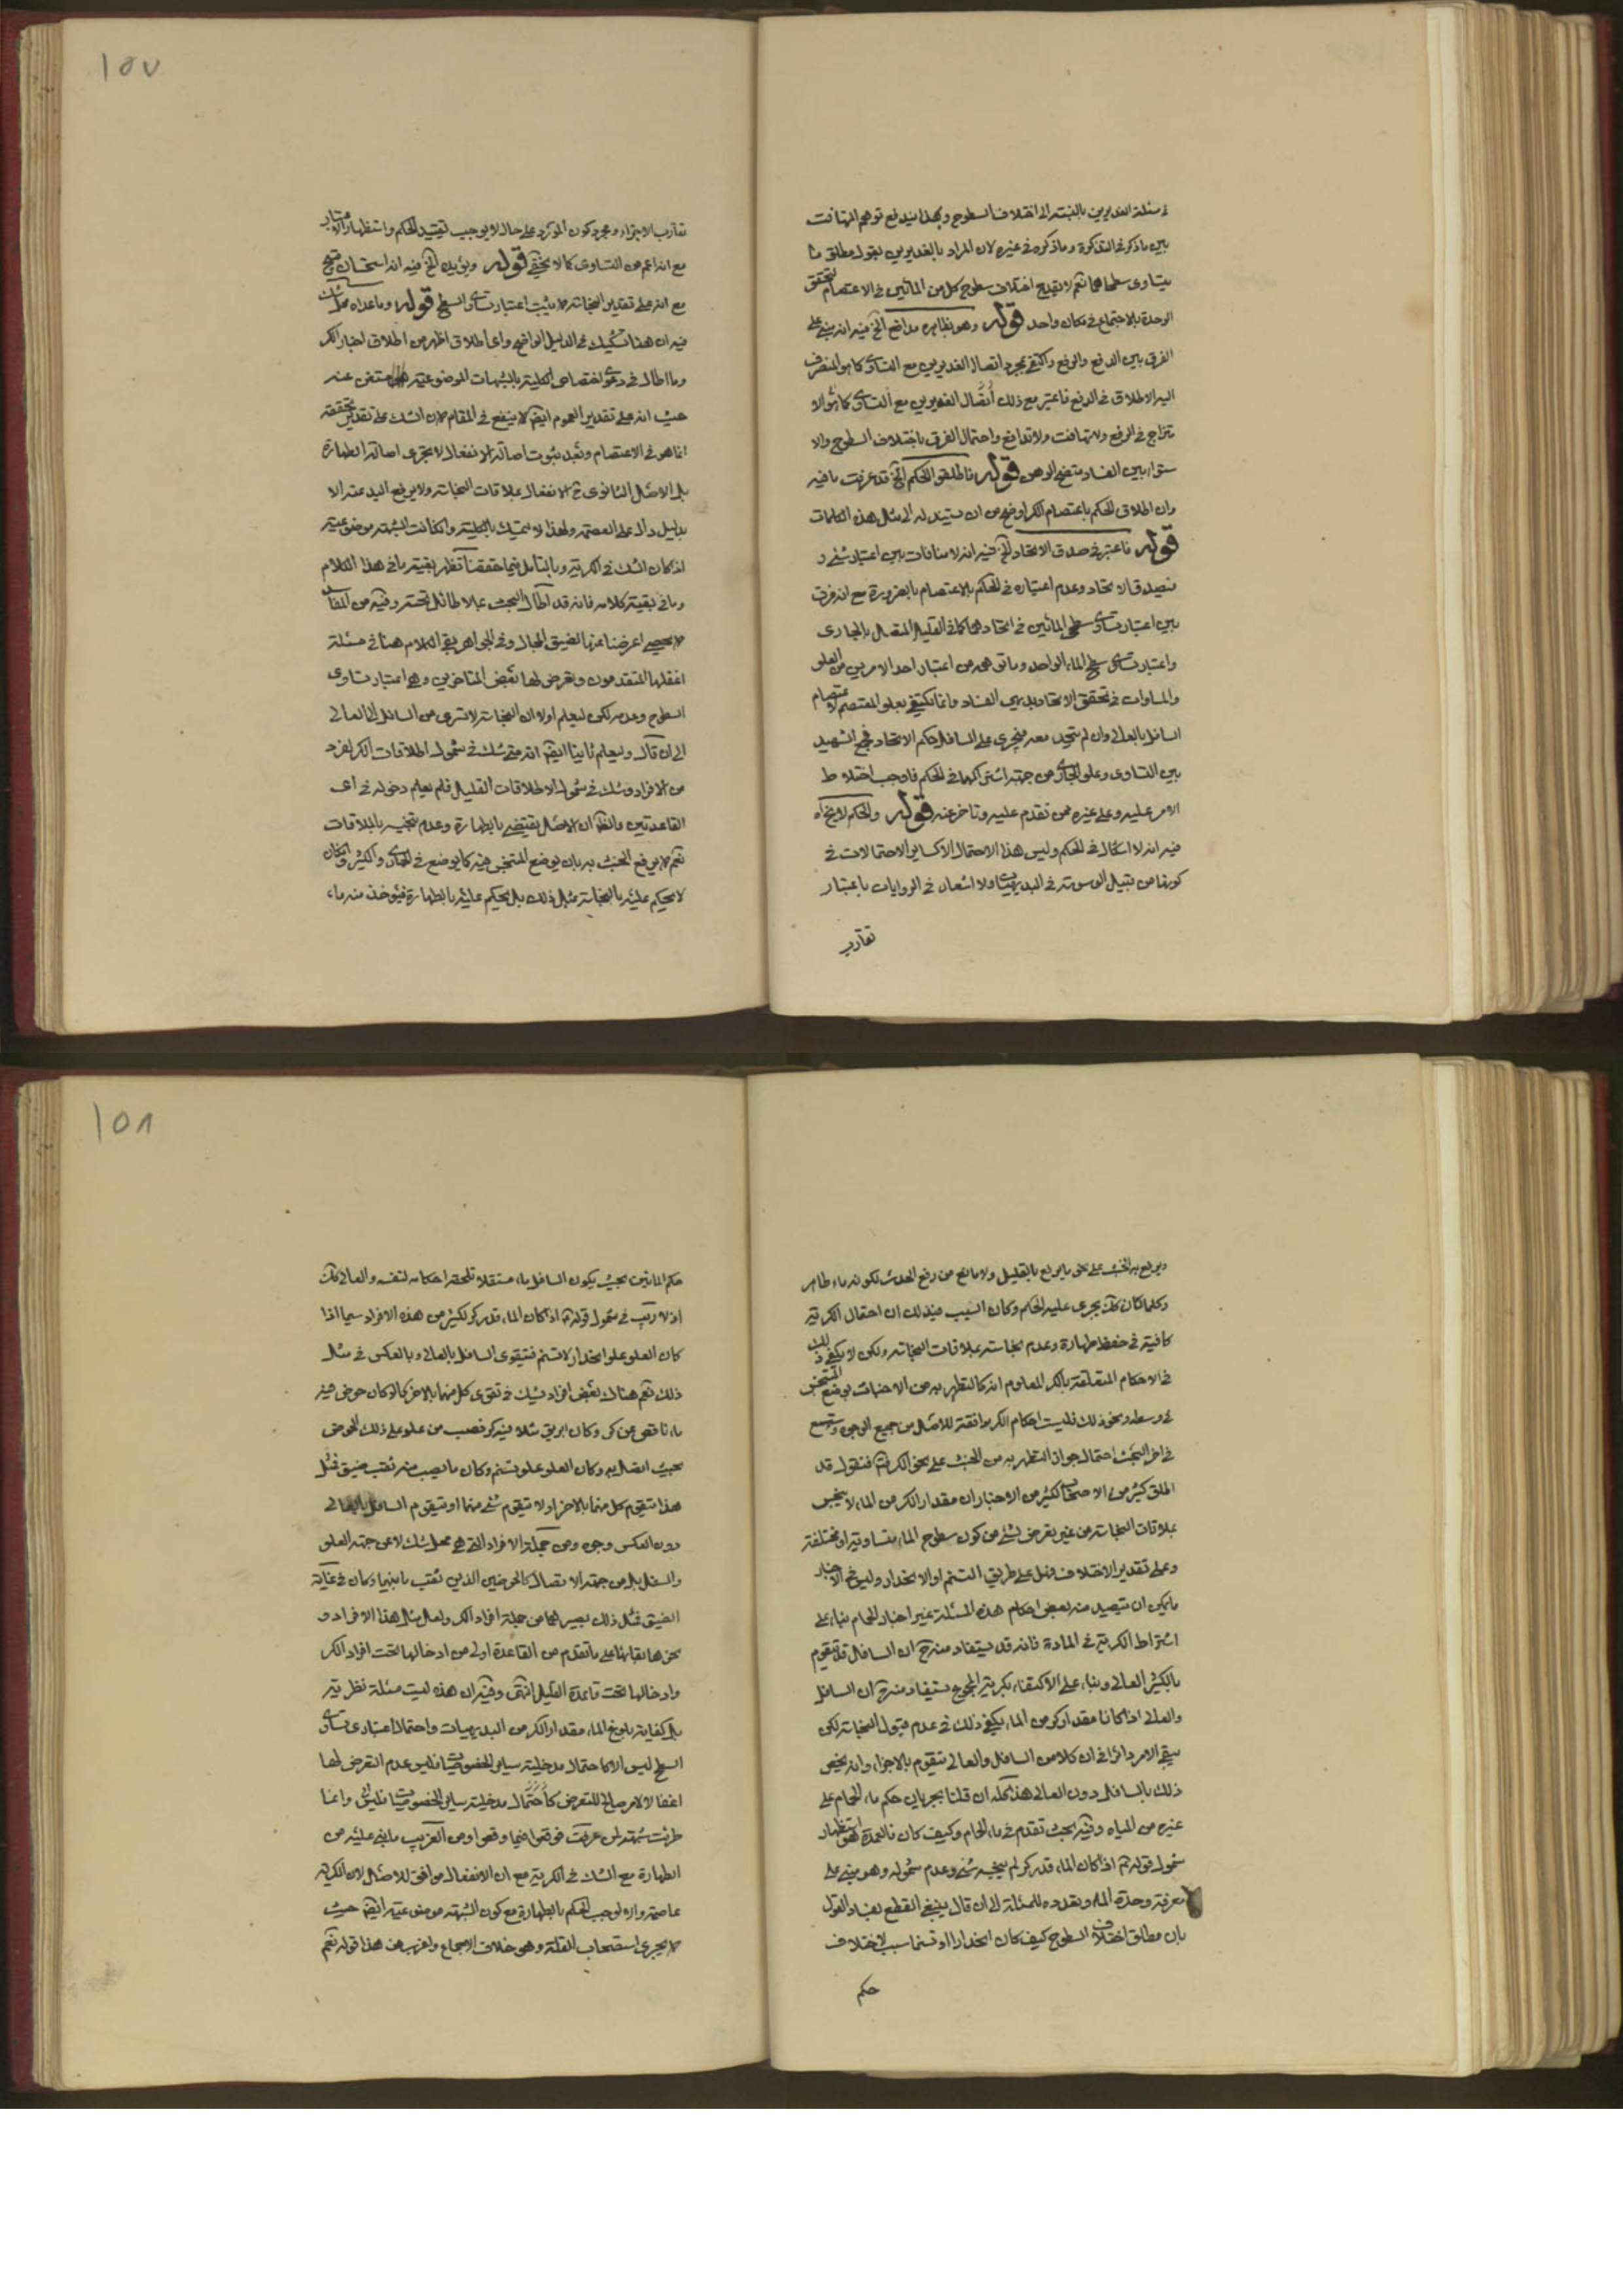 في مسئلة الغديرين بالنسبة الى اختلاف السطوح وبهذا يندفع توهم التهافت
بين ما ذكره في التذكرة وما ذكره في غيره لان المراد بالغديرين بقول مطلق ما
يتساوى سطحاهما نعم لا يقدح اختلاف سطوح كل من المائين في الاعتصام لتحقق
الوحدة بالاجتماع في مكان واحد قوله وهو بظاهره مدافع الخ فيه انه مبني على
الفرق بين الدفع والرفع واكتفى بمجرد اتصال الغديرين مع التساوى كما هو المنصرف
اليه الاطلاق في الدفع فاعتبر مع ذلك اتصال الغديرين مع التساوى كما هو الا
متزاج في الرفع ولا تهافت ولا تدافع واحتمال الفرق باختلاف السطوح والا
ستواء بين الفساد متضح الوهن قوله فاطلقوا الحكم الخ قد عرفت ما فيه
وان اطلاق الحكم باعتصام الكر اوضح من ان يستدل له الى مثل هذه الكلمات
قوله فاعتبر في صدق الاتحاد الخ فيه انه لا منافات بين اعتبار شئ و
في صدق الاتحاد وعدم اعتباره في الحكم بالاعتصام بالضرورة مع انه فرق
بين اعتبار تساوى سطحى المائين في اتحادهما كما في القليل المتصل بالجارى
واعتبار تساوى سطح الماء الواحد وما توهمه من اعتبار احد الامرين من العلو
والمساوات في تحقق الاتحاد بديهى الفساد وانما يكتفى بعلو المعتصم لاعتصام
السافل بالعالى وان لم يتحد معه فيجرى على السافل حكم الاتحاد فجمع الشهيد
بين التساوى وعلو الجارى من جهة اشتراكهما في الحكم فاوجب اختلاط
الامر عليه وعلى غيره ممن تقدم عليه وتاخر عنه قوله والحكم لا يخ اه
فيه انه لا اشكال في الحكم وليس هذا الاحتمال الا كساير الاحتمالات في
كونها من قبيل الوسوسة في البديهيات ولا اشعار في الروايات باعتبار
تقارب
١٥٧
تقارب الاجزاء ومجرد كون المورد على حال لا يوجب تقييد الحكم واستظهار التقارب
مع انه اعم من التساوى كما لا يخفى قوله ويؤيده الخ فيه انه استحسان قبيح
مع انه على تقدير النجاسة لا يثبت اعتبار تساوى السطح قوله وما عداه محل شك
فيه ان هذا تشكيك في الدليل الواضح واى اطلاق اظهر من اطلاق اخبار الكر
وما اطال في دعوى اختصاص الكلية بالشبهات الموضوعية مستغن عنه
حيث انه على تقدير العموم ايضا لا ينفع في المقام لان الشك على تقدير تحققه
انما هو في الاعتصام وبعد ثبوت اصالة الانفعال لا يجرى اصالة الطهارة
بل الاصل الثانوى ح الانفعال بملاقات النجاسة ولا يرفع اليد عنه الا
بدليل دال على العصمة ولهذا لا يتمسك بالكلية وان كانت الشبهة موضوعية
اذ كان الشك في الكرية وبالتامل فيما حققنا تظهر بقية ما في هذا الكلام
وما في بقية كلامه فانه قد اطال البحث بما لا طائل تحته وفيه من المفاسد
لا يحصى اعرضنا عنها لضيق المجال وفي الجواهر بقى الكلام هنا في مسئلة
اغفلها المتقدمون وتعرض لها بعض المتاخرين وهى اعتبار تساوى
السطوح وعدمه لكن ليعلم اولا ان النجاسة لا تسرى من السافل الى العالى
الى ان قال وليعلم ثانيا ايضا انه متى شك في شمول اطلاقات الكر لفرد
من الافراد وشك في شمول الاطلاقات القليل فلم يعلم دخوله في اى
القاعدتين فالظ ان الاصل يقتضى بالطهارة وعدم تنجسه بالملاقات
نعم لا يرفع الخبث به بان يوضع المتنجس فيه كما يوضع في الجارى والكثير وان كان
لا يحكم عليه بالنجاسة بمثل ذلك بل يحكم عليه بالطهارة فيؤخذ منه ماء
ويرفع به الخبث على نحو ما يرفع بالقليل ولا مانع من رفع الحدث لكونه ماء طاهر
وكلما كان كك يجرى عليه الحكم وكان السبب في ذلك ان احتمال الكرية
كافية في حفظ طهارة وعدم نجاسة بملاقات النجاسة ولكن لا يكفى ذلك
في الاحكام المتعلقة بالكر المعلوم انه كالتطهر به من الاخباث بوضع المتنجس
في وسطه ونحو ذلك فليست احكام الكر موافقة للاصل من جميع الوجوه وتسمع
في اخر البحث احتمال جواز التطهر به من الخبث على نحو الكر ثم فنقول قد
اطلق كثير من الاصحاب ككثير من الاخبار ان مقدار الكر من الماء لا ينجس
بملاقات النجاسة من غير تعرض لشئ من كون سطوح الماء متساوية او مختلفة
وعلى تقدير الاختلاف فهل على طريق التسنم او الانحدار وليس في الاخبار
ما يمكن ان يستفيد منه بعض احكام هذه المسئلة غير اخبار الحمام بناء على
اشتراط الكرية في المادة فانه قد يستفاد منه ح ان السافل قد يتقوم
بالكثير العالى وبناء على الاكتفاء بكرية المجموع يستفاد منه ح ان السافل
والعالى اذا كانا مقدار كر من الماء يكفى ذلك في عدم قبول النجاسة لكن
يبقى الامر دائرا في ان كلا من السافل والعالى يتقوم بالاخر او انه يخص
ذلك بالسافل دون العالى هذا كله ان قلنا بجريان حكم ماء الحمام على
غيره من المياه وفيه بحث تقدم في ماء الحمام وكيف كان فالعمدة هو استظهار
شمول قوله ع اذا كان الماء قدر كر لم ينجسه شئ وعدم شموله وهو مبنى على
معرفة وحدة الماء وتعدده للمسئلة الى ان قال ينبغى القطع بفساد القول
بان مطلق اختلاف السطوح كيف كان انحدارا او تسنما سبب لاختلاف
حكم
١٥٨
حكم المائين بحيث يكون السافل ماء مستقلا تلحقه احكامه لنفسه والعالى كك
اذ لا ريب في شمول قوله ع اذا كان الماء قدر كر لكثير من هذه الافراد سيما اذا
كان العلو علو انحدار لا تسنم فيتقوى السافل بالعالى وبالعكس في مثل
ذلك نعم هناك بعض افراد يشك في تقوى كل منهما بالاخر كما لو كان حوض فيه
ماء ناقص عن كر وكان ابريق مثلا فيه كر فصب من علو على ذلك الحوض
بحيث اتصل به وكان العلو علو تسنم وكان ما يصب منه ثقب ضيق فهل
هذا يتقوم كل منهما بالاخر او لا يتقوم شئ منهما او يتقوم السافل بالعالى
دون العكس وجوه ومن جملة الافراد التى هى محل شك لا من جهة العلو
والسفل بل من جهة الاتصال كالحوضين الذين ثقب ما بينهما وكان في غاية
الضيق فمثل ذلك يصير لهما من جملة افراد الكر ولعل مثل هذا الافراد و
نحوها بقائها على ما تقدم من القاعدة اولى من ادخالها تحت افراد الكر
وادخالها تحت قاعدة القليل انتهى وفيه ان هذه ليست مسئلة نظرية
بل كفاية بلوغ الماء مقدار الكر من البديهيات واحتمال اعتبار تساوى
السطح ليس الا كاحتمال مدخلية ساير الخصوصيات فليس عدم التعرض لها
اغفالا لامر صالح للتعرض كاحتمال مدخلية ساير الخصوصيات وانما
طرئت شبهة لمن عرفت فوقعوا فيما وقعوا ومن الغريب ما بنى عليه من
الطهارة مع الشك في الكرية مع ان الانفعال موافق للاصل لان الكرية
عاصمة والا لوجب الحكم بالطهارة مع كون الشبهة موضوعية ايضا حيث
لا يجرى استصحاب القلة وهو خلاف الاجماع واغرب من هذا قوله نعم